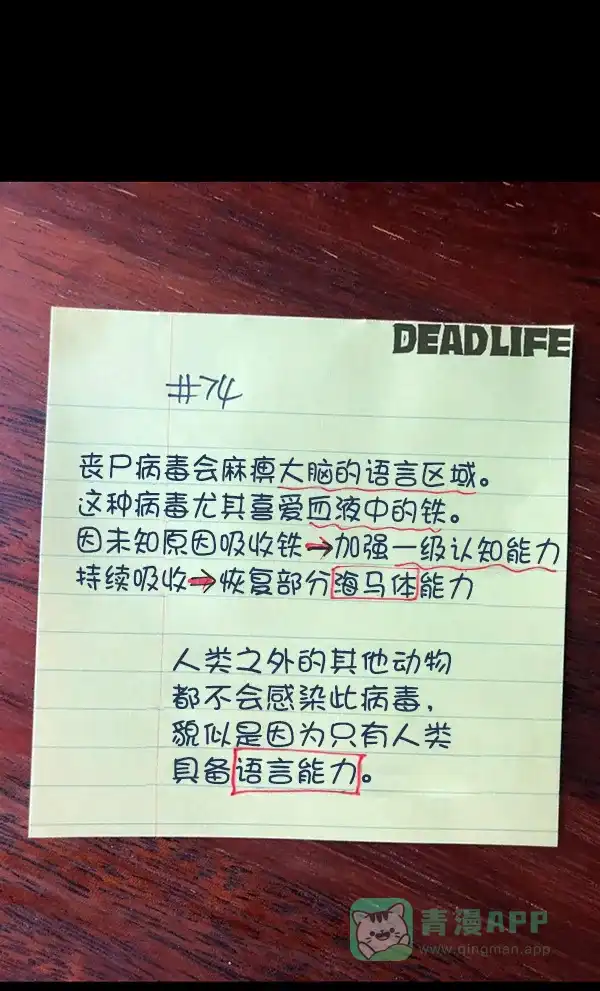 DEADLIFE
#74
丧尸病毒会麻痹大脑的语言区域。
这种病毒尤其喜爱血液中的铁。
因未知原因吸收铁→加强一级认知能力
持续吸收→恢复部分海马体能力
人类之外的其他动物
都不会感染此病毒，
貌似是因为只有人类
具备语言能力。
青漫APP
www.qingman.app